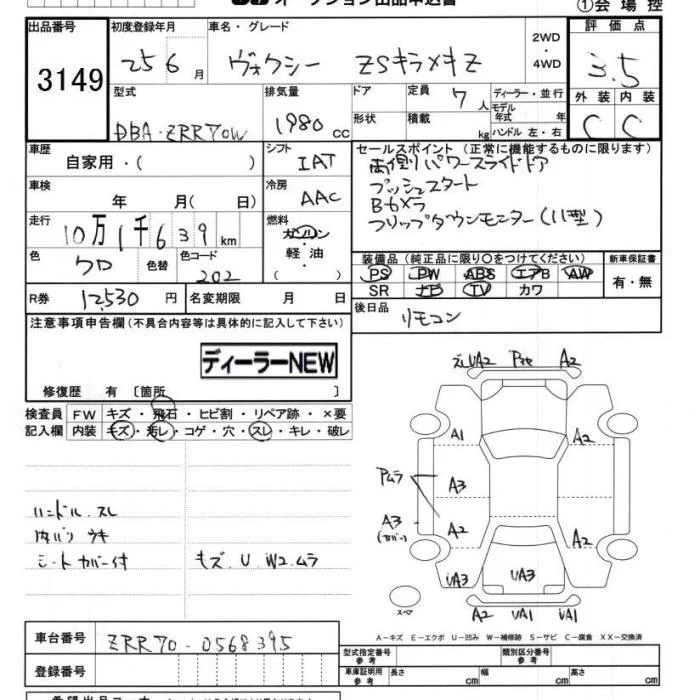 オークション出品申込書
①会場控
出品番号 初度登録年月 車名・グレード 2WD・4WD 評価点
3149 25 6月 ヴォクシー ZSキラメキZ 3.5
型式 排気量 ドア 定員 7人 ディーラー・並行 外装 内装
DBA-ZRR70W 1980cc 形状 積載 kg モデル年式 年 ハンドル 左・右 C C
車歴 シフト セールスポイント(正常に機能するものに限ります)
自家用・( ) IAT 両側パワースライドドア
車検 冷房 プッシュスタート
年 月( 日) AAC Bカメラ
走行 燃料 フリップダウンモニター(11型)
10万1千639km ガソリン
色 色替 色コード 軽油 装備品(純正品に限り○をつけてください) 新車保証書
クロ 202 ( ) PS PW ABS エアB AW 有・無
SR ナビ TV カワ
R券 12,530円 名変期限 月 日 後日品 リモコン
注意事項申告欄(不具合内容等は具体的に記入して下さい)
ディーラーNEW
修復歴 有 〔箇所 〕
検査員 FW キズ・飛石・ヒビ割・リペア跡・×要
記入欄 内装 キズ・汚レ・コゲ・穴・スレ・キレ・破レ
ハンドル スレ
内バリ ウキ
シートカバー付 キズ.U.W2.ムラ
UA2 A2
A1 A2
Pムラ
A3
A3 A2 A2
(カバー)
UA3 UA3
スペア
A2 UA1 UA1
A-キズ E-エクボ U-凹み W-補修跡 S-サビ C-腐食 XX-交換済
車台番号 ZRR70-0568395
型式指定番号 参考 類別区分番号 参考
登録番号 車庫証明用 参考 長さ cm 幅 cm 高さ cm